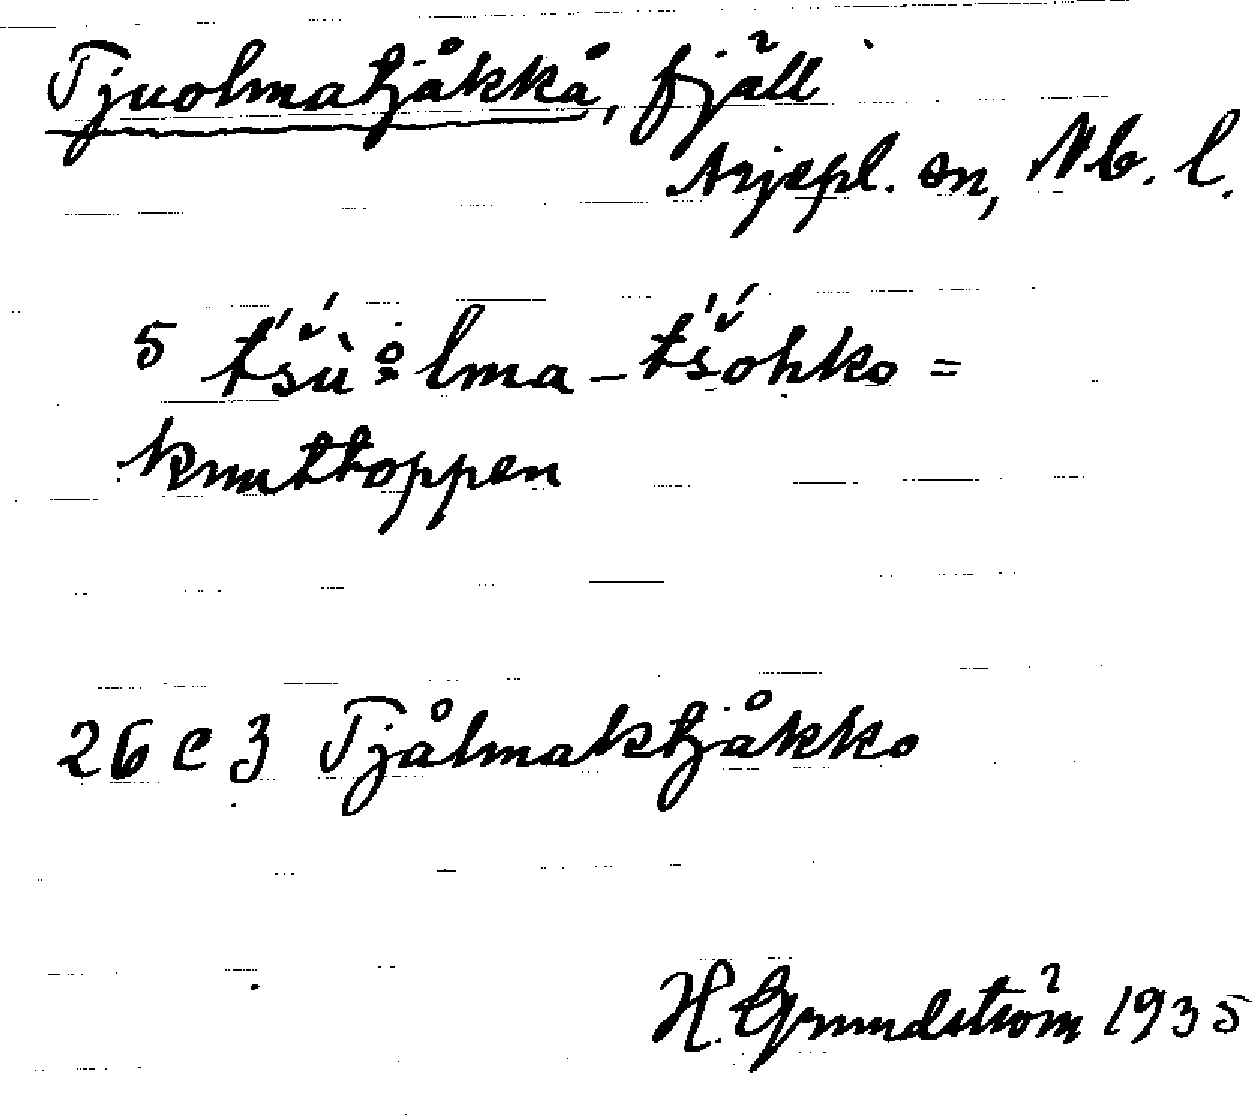 Tjuolmatjåkkå, fjäll
Arjepl. sn, Nb. l.
5 t́š́ùo̥lma-t́š́ohko =
knuttoppen
26 c 3 Tjålmaktjåkko
H. Grundström 1935